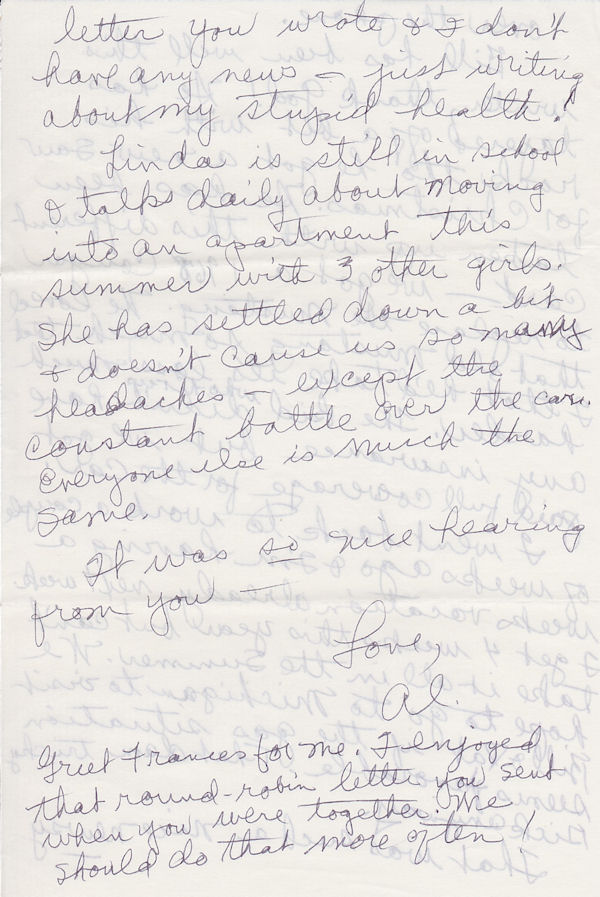 letter you wrote & I don't
have any news – just writing
about my stupid health!
Linda is still in school
& talks daily about moving
into an apartment this
summer with 3 other girls.
She has settled down a bit
& doesn't cause us so many
headaches – except the
constant battle over the car.
Everyone else is much the
same.
It was so nice hearing
from you —
Love,
Al.
Greet Frances for me. I enjoyed
that round-robin letter you sent
when you were together. We
should do that more often!